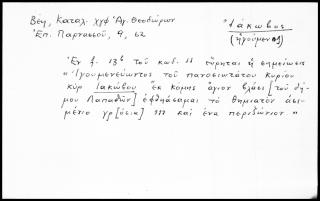 Βέη, Καταλ. χγφ Ἁγ. Θεοδώρων
Ἐπ. Παρνασσοῦ, 9, 62
Ἰάκωβος
(ἡγούμενος)
Ἐν φ. 13β τοῦ κωδ. 11 εὕρηται ἡ σημείωσις
"Ἡγουμενεύωντος τοῦ πανοσιντάτου κυρίου
κὺρ Ἰακώβου ἐκ κόμης ἅγιον βλάσι [τοῦ δή-
μου Λαπαθῶν] ἐφθηάσαμαι τὸ θημιατὸν ἀσι-
μένιο γρ[όσια] 111 καὶ ἕνα περιζώνιον."